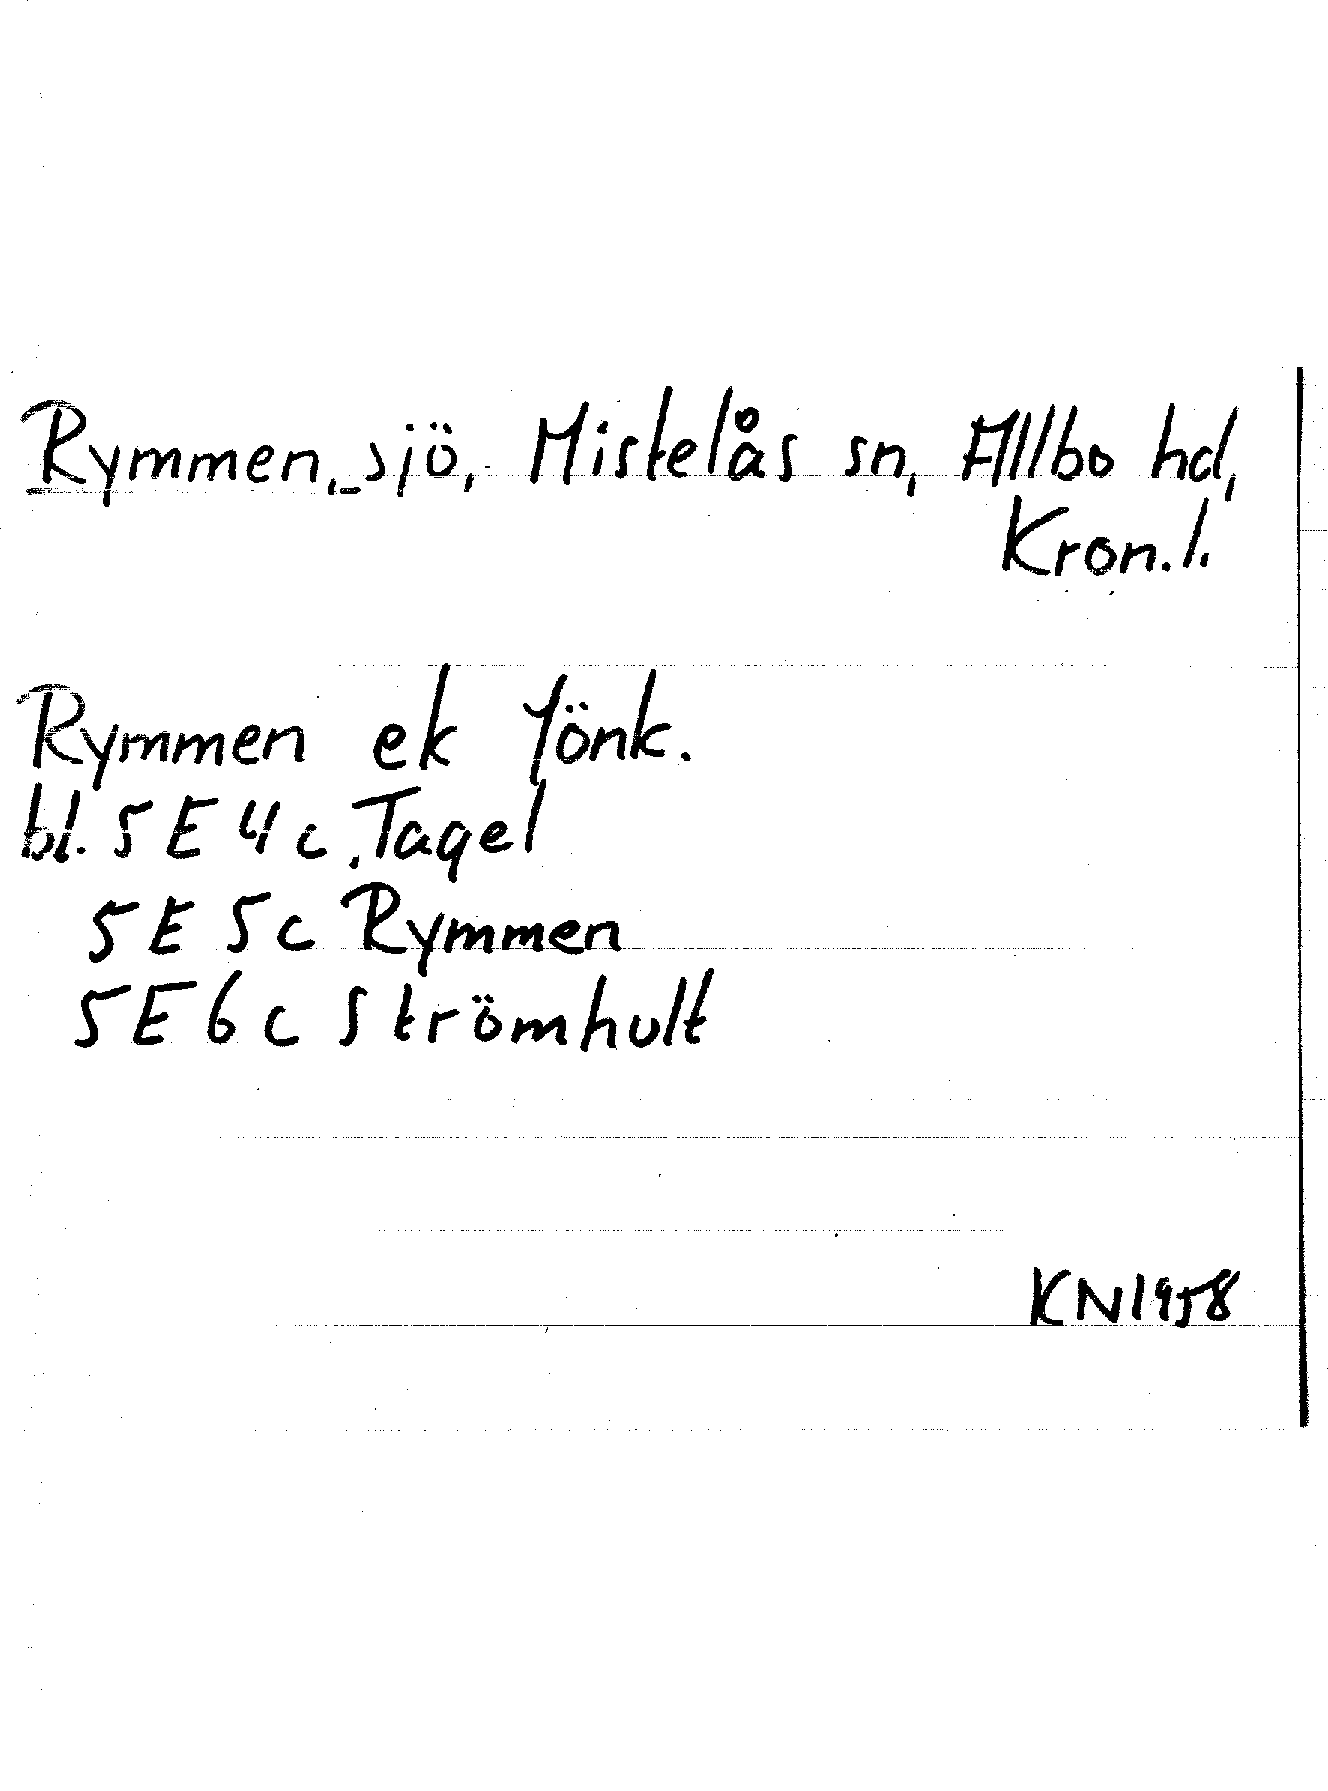 Rymmen, sjö, Mistelås sn, Allbo hd,
Kron. l.
Rymmen ek Jönk.
bl. 5 E 4 c, Tagel
5 E 5 c Rymmen
5 E 6 c Strömhult
KN 1958